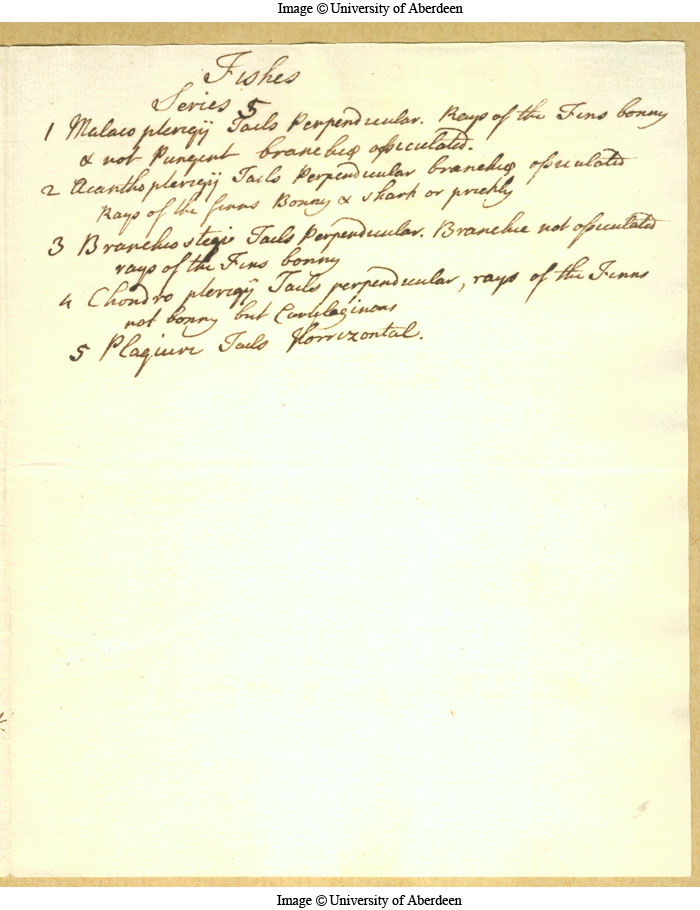 Image © University of Aberdeen
Fishes
Series 5
1 Malaco pterigij Tails Perpendicular. Rays of the Fins bonny
& not Pungent branchiæ ossiculated.
2 Acanthopterigij Tails Perpendicular branchiæ ossiculated
Rays of the finns Bonny & sharp or prickly
3 Branchiostegi Tails Perpendicular. Branchie not ossiculated
rays of the Fins bonny
4 Chondro pterigij Tails perpendicular, rays of the Finns
not bonny but Cartilaginous
5 Plagiuri Tails Horrizontal.
Image © University of Aberdeen